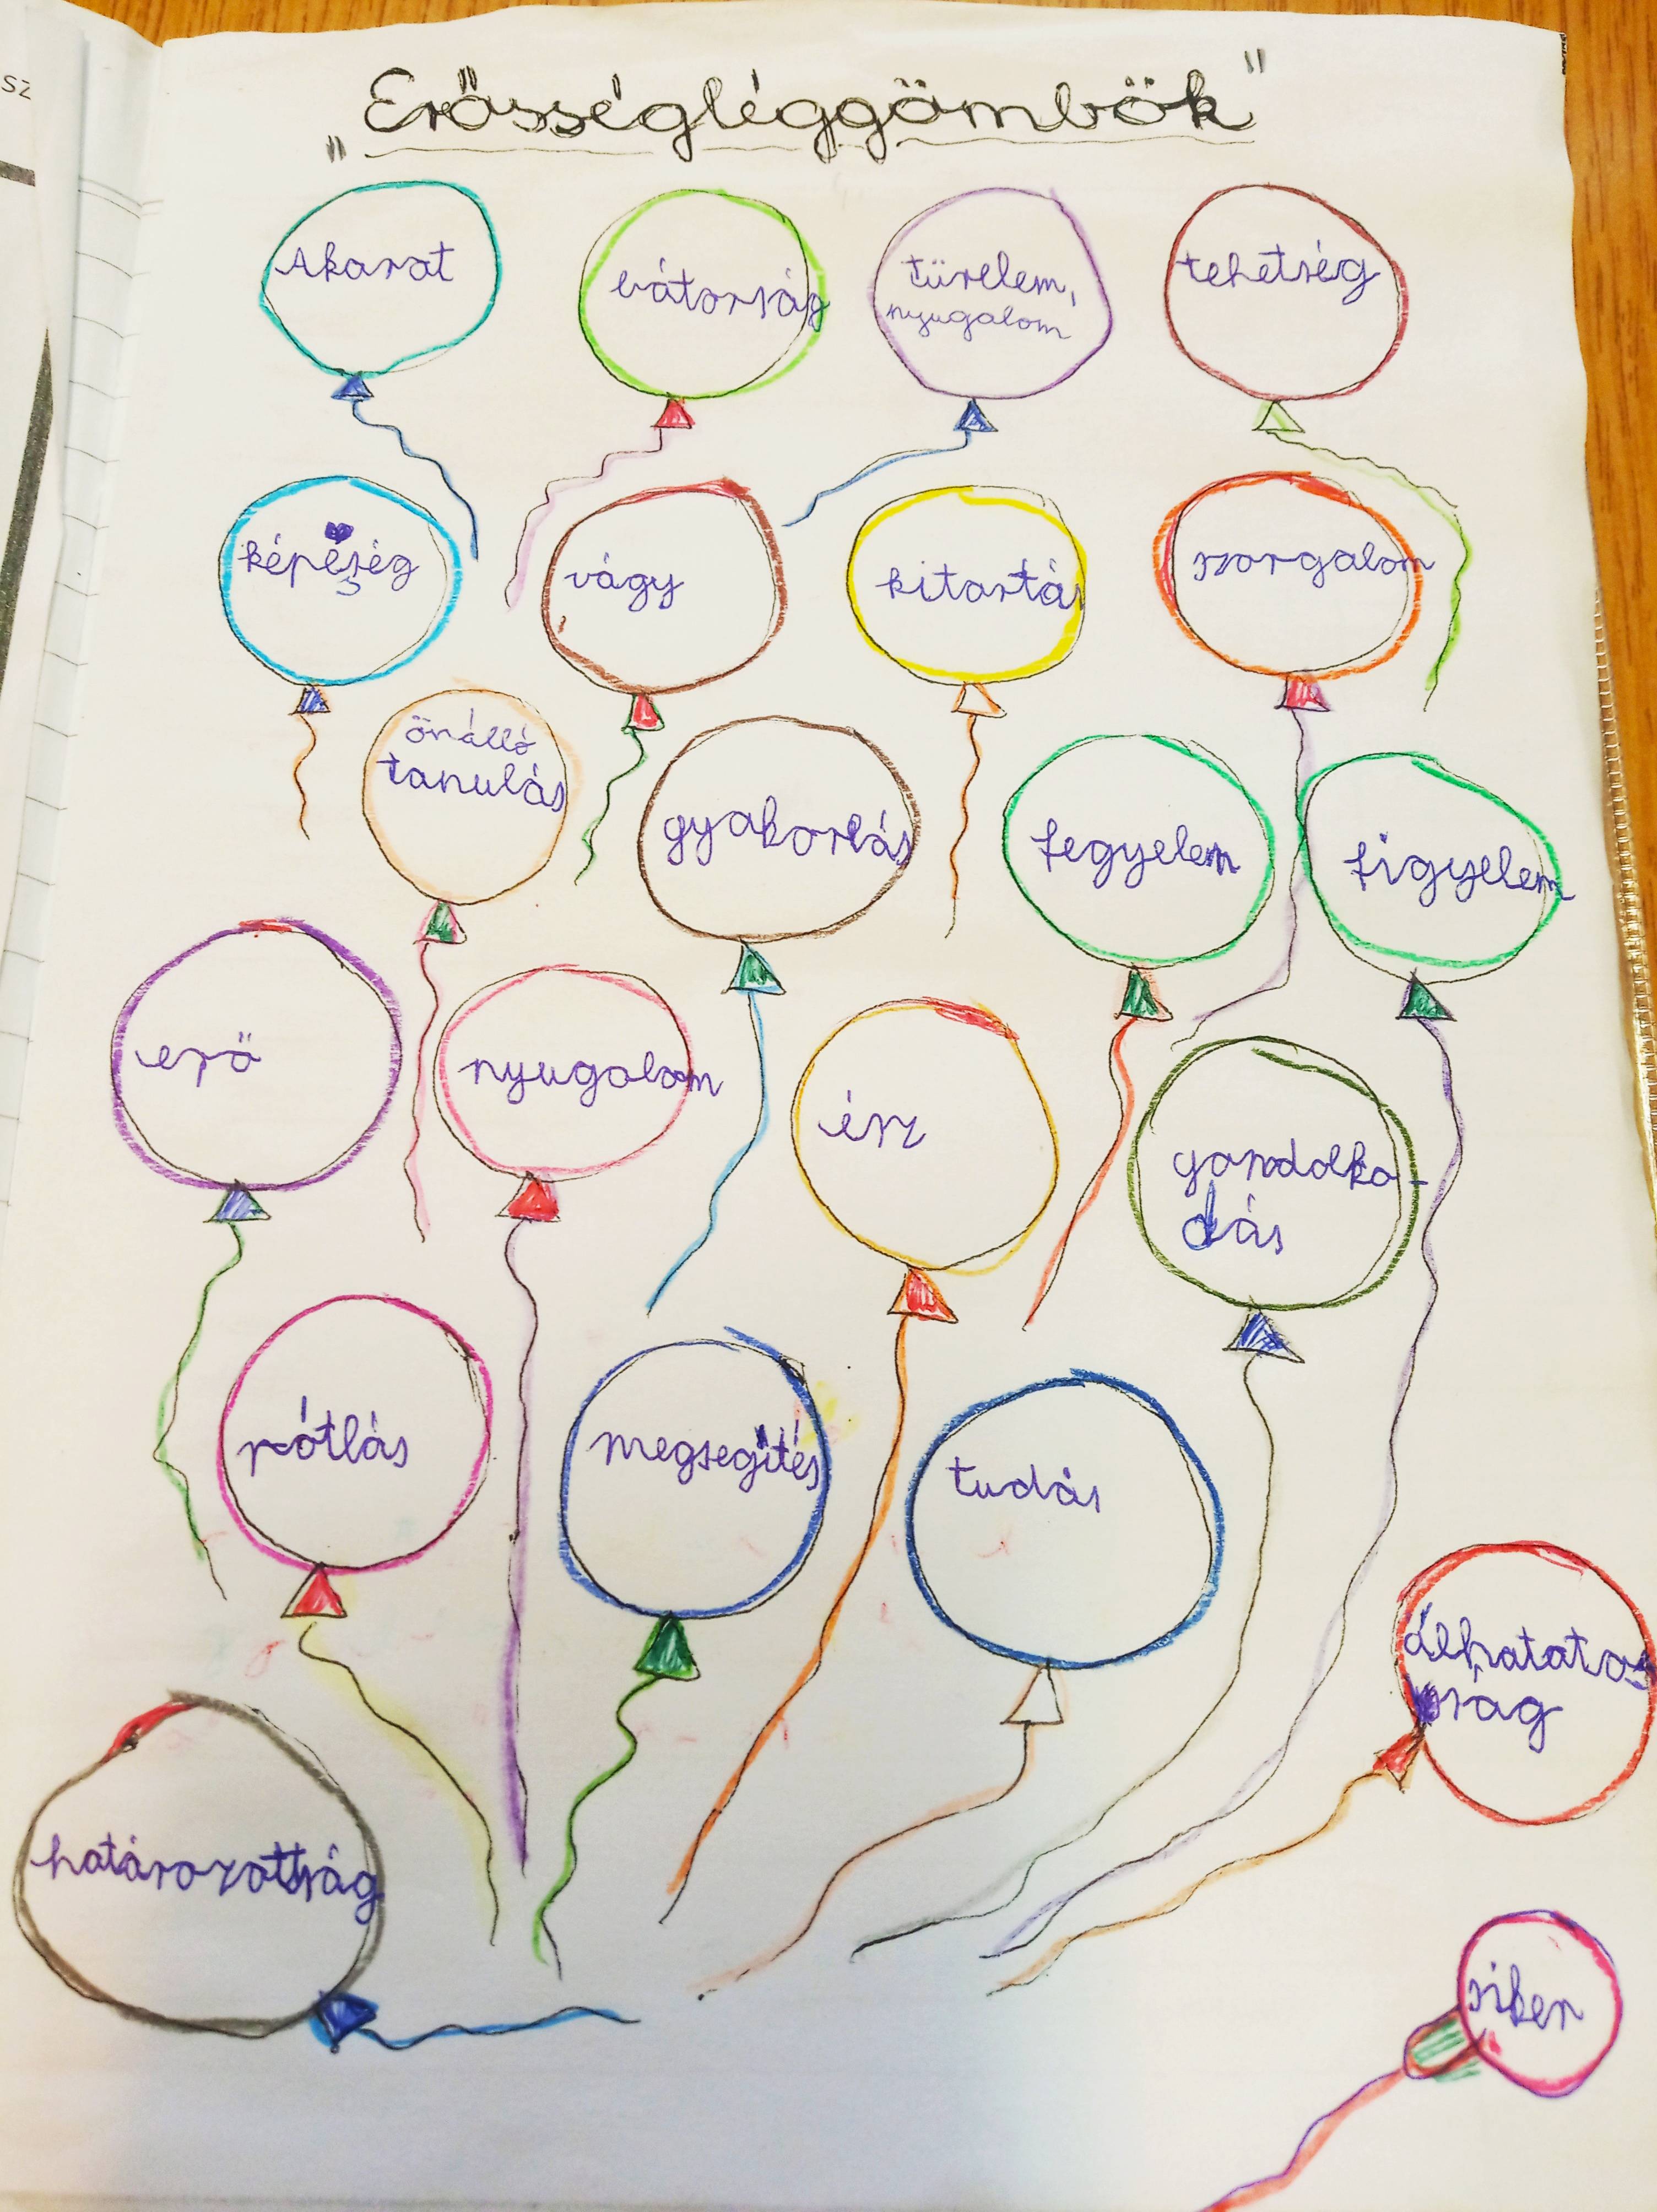 sz
„Erősségléggömbök"
Akarat
bátorság
türelem,
nyugalom
tehetség
képesség
vágy
kitartás
szorgalom
önálló
tanulás
gyakorlás
fegyelem
figyelem
erő
nyugalom
ész
gondolko-
dás
pótlás
megsegítés
tudás
álhatatos
ság
határozottság
siker